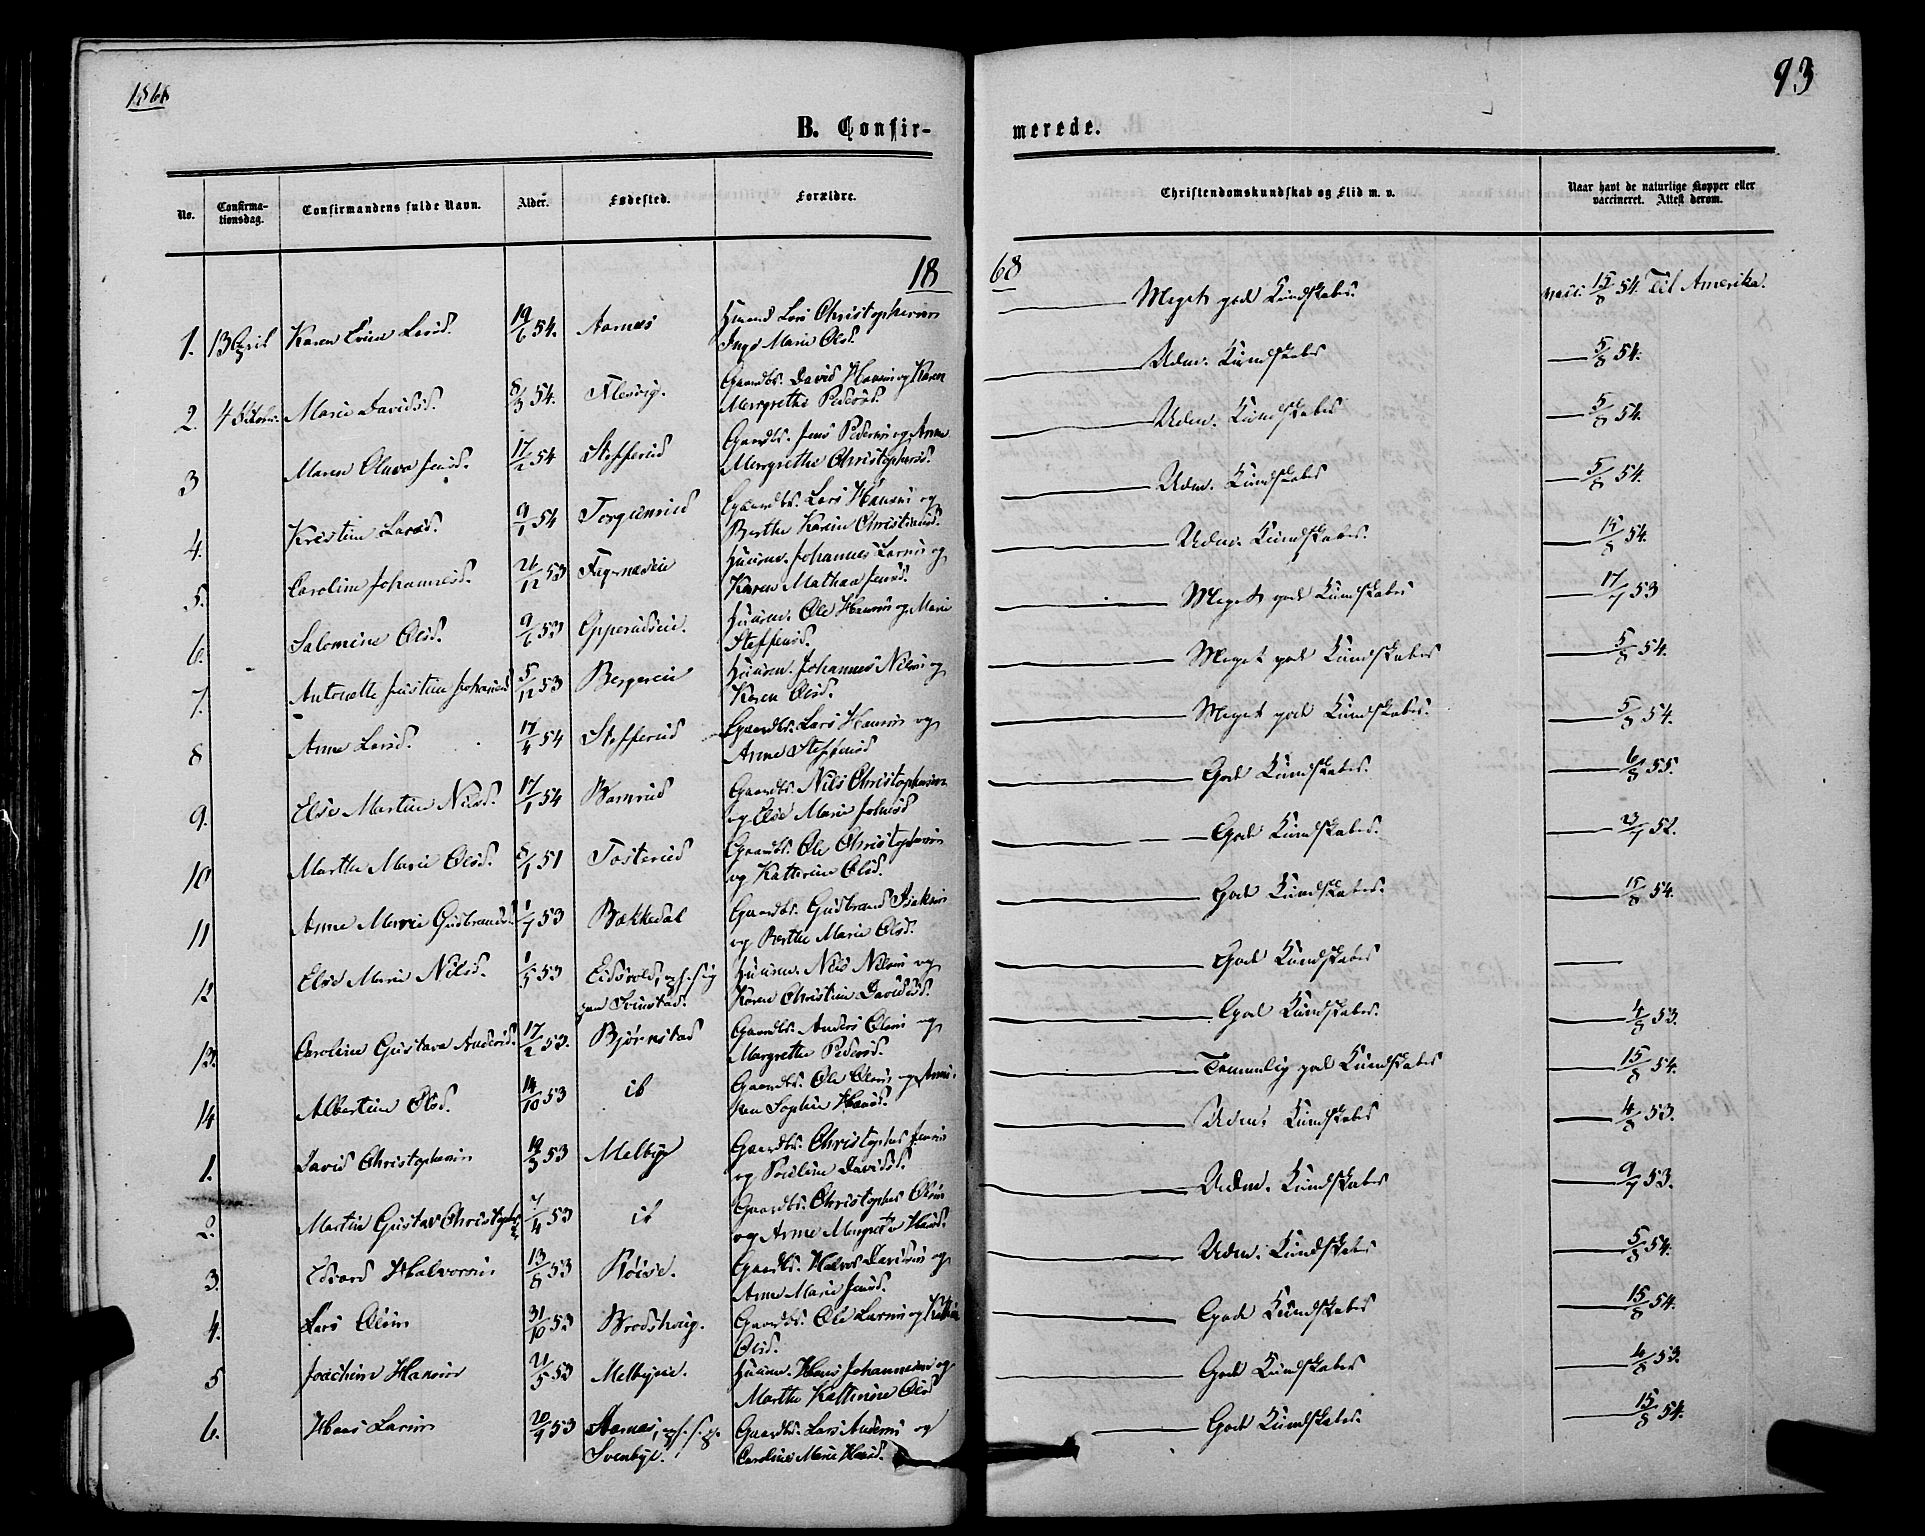 1868
93
B. Confir-
merede.
No.
Confirma-
tionsdag.
Confirmandens fulde Navn.
Alder.
Fødested.
Forældre.
Christendomskundskab og Flid m. v.
Naar havt de naturlige Kopper eller
vaccineret. Attest derom.
18 68
1. 13 April Karen Larsd. 19/6 54. Aarnæs Huusmd Lars Christophersen
Inge Marie Olsd. Meget god Kundskabs. vacc. 15/8 54. Til Amerika.
2. Marie Davidsd. 8/3 54. Flesvig. Gaardbr. David Hansen og Karen
Margrethe Pedersd. Udm. Kundskabs 5/8 54.
3 Maren Olava Jensd. 17/2 54 Stefferud Gaardbr. Jens Pedersen og Anne
Margrethe Christophersd. Udm. Kundskabs 5/8 54.
4. Kristine Larsd. 9/1 54 Torgunrud Gaardbr. Lars Hansen og
Berthe Karine Christiansd. Udm. Kundskabs 5/8 54.
5. Caroline Johannesd. 26/12 53 Fagernæseie Huusm. Johannes Larsen og
Karen Mathea Jensd. Udm. Kundskabs. 15/8 54.
6. Salomine Olsd. 9/6 53 Opperudseie. Huusm. Ole Hansen og Marie
Steffensd. Meget god Kundskabs 17/7 53
7. Antonette Justine Johannesd 5/12 53 Bergereie Huusm. Johannes Nilsen og
Karen Olsd. Meget god Kundskabs 5/8 54.
8 Anne Larsd. 17/4 54 Stefferud Gaardbr. Lars Hansen og
Anne Steffensd Meget god Kundskabs. 5/8 54.
9. Else Martine Nilsd. 17/1 54 Bamrud Gaardbr. Nils Christophersen
og Else Marie Johnsd God Kundskabs. 6/8 55.
10 Marthe Marie Olsd. 8/1 51 Tosterud Gaardbr. Ole Christophersen
og Kathrine Olsd. God Kundskabs. 3/7 52.
11 Anne Marie Gudbrandsd. 1/7 53 Bækkedal Gaardbr. Gudbrand Isaksen
og Berthe Marie Olsd. God Kundskabs. 15/8 54.
12 Else Marie Nilsd. 1/5 53 Eidsvold, opf. sig
paa Svinstad. Huusm. Nils Nilsen og
Karen Christine Davidsd. God Kundskabs
13. Caroline Gustava Andersd. 17/2 53. Bjørnstad Gaardbr. Anders Olsen og
Margrethe Pedersd. God Kundskabs. 4/8 53.
14 Albertine Olsd. 14/10 53 ib Gaardbr. Ole Olsen og Anni-
ken Sophie Hansd. Temmelig god Kundskabs 15/8 54.
1. David Christophersen 19/3 53 Melbye Gaardbr. Christopher Jensen
og Pouline Davidsd. Udm. Kundskabs 4/8 53.
2. Martin Gustav Christophs 7/4 53 ib Gaardbr. Christopher Olsen
og Anne Margrethe Hansd. Udm. Kundskabs 9/7 53.
3. Edvard Halvorsen 13/8 53 Røise. Gaardbr. Halvor Davidsen og
Anne Marie Jensd. Udm. Kundskabs 5/8 54.
4. Lars Olsen 31/10 53 Brodshaug. Gaardbr. Ole Larsen og
Olsd. God Kundskabs 15/8 54.
5 Joachim Hansen 21/5 53 Melbyeie. Huusm. Hans Johannesen og
Marthe Kathrine Olsd God Kundskabs 4/8 53.
6. Hans Larsen 20/9 53 Aarnæs, opf. s. p.
Svenbye. Gaardbr. Lars Andersen og
Caroline Marie Hansd. God Kundskabs. 15/8 54.